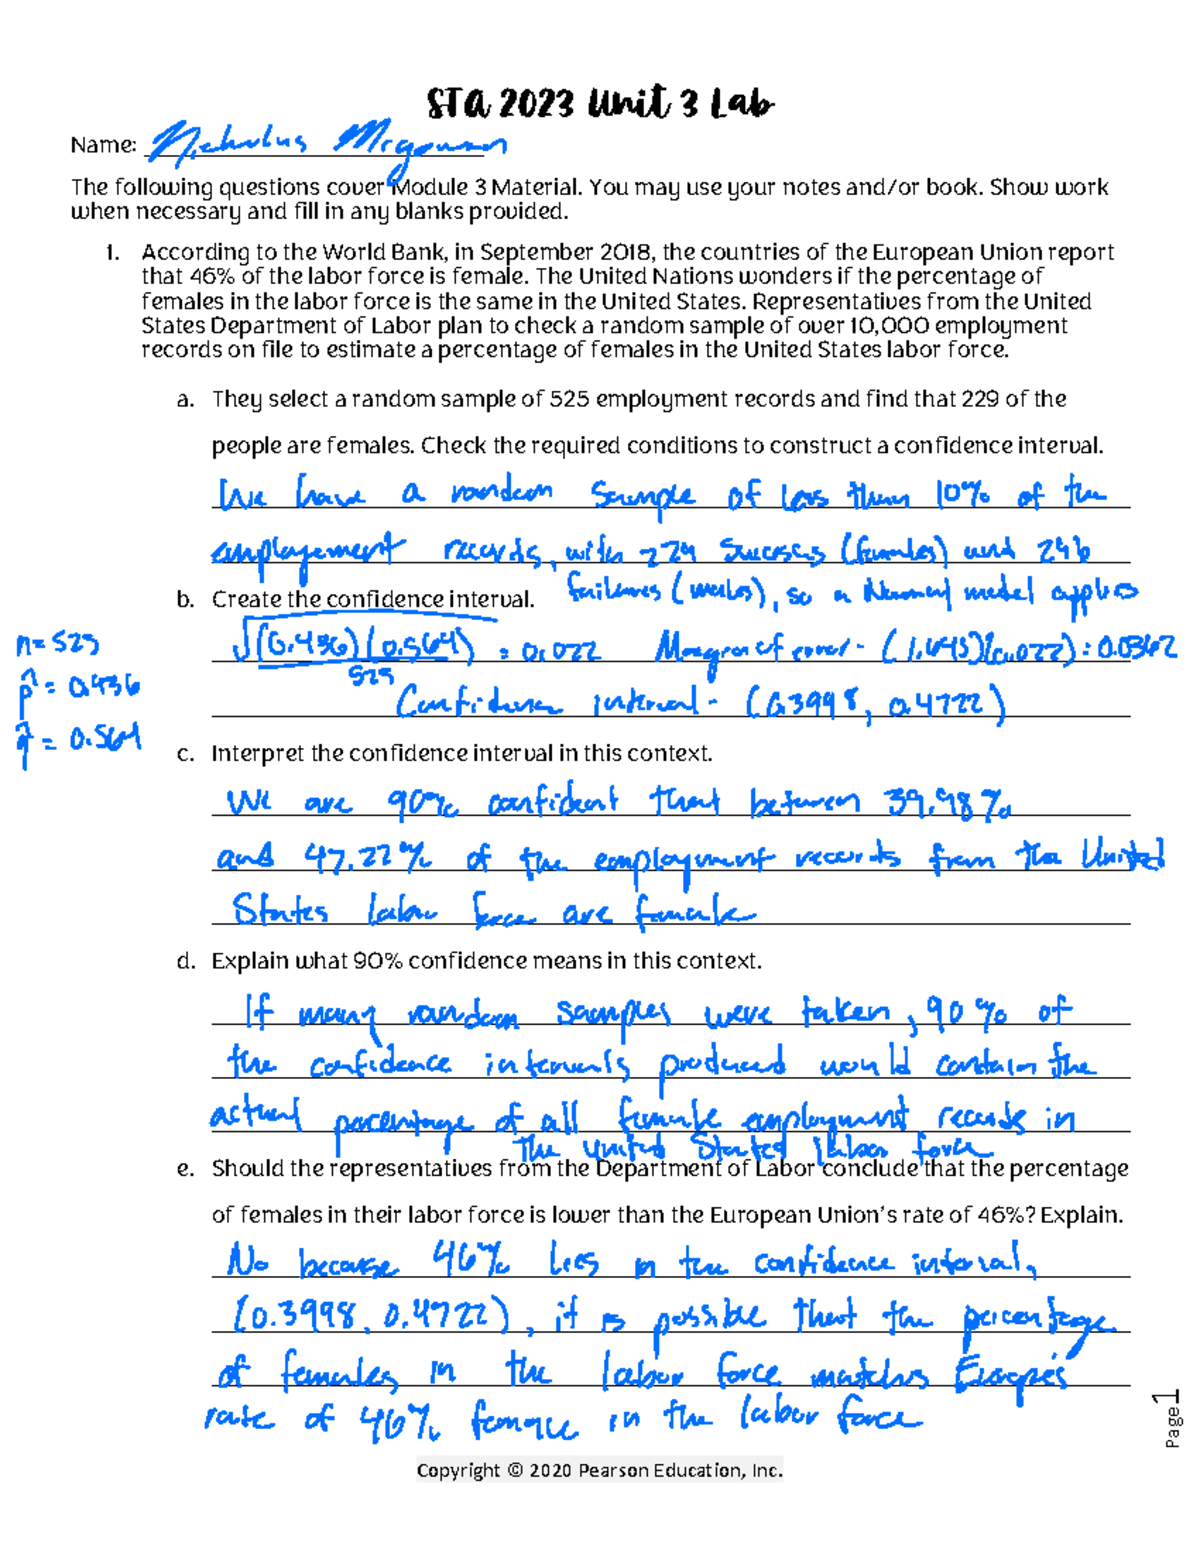 STA 2023 Unit 3 Lab
Name: Nicholus Mcgowan
The following questions cover Module 3 Material. You may use your notes and/or book. Show work
when necessary and fill in any blanks provided.
1. According to the World Bank, in September 2018, the countries of the European Union report
that 46% of the labor force is female. The United Nations wonders if the percentage of
females in the labor force is the same in the United States. Representatives from the United
States Department of Labor plan to check a random sample of over 10,000 employment
records on file to estimate a percentage of females in the United States labor force.
a. They select a random sample of 525 employment records and find that 229 of the
people are females. Check the required conditions to construct a confidence interval.
We have a random sample of less than 10% of the
employement records, with 229 success (females) and 296
failures (males), so a Normal model applies
b. Create the confidence interval.
n = 525
p̂ = 0.436
q̂ = 0.564
√(0.436)(0.564) = 0.022 Margin of error - (1.645)(0.022) = 0.0362
525
Confidence interval - (0.3998, 0.4722)
c. Interpret the confidence interval in this context.
We are 90% confident that between 39.98%
and 47.22% of the employment records from the United
States labor force are female
d. Explain what 90% confidence means in this context.
If many random samples were taken, 90% of
the confidence intervals produced would contain the
actual percentage of all female employment records in
the United States labor force
e. Should the representatives from the Department of Labor conclude that the percentage
of females in their labor force is lower than the European Union's rate of 46%? Explain.
No because 46% lies in the confidence interval,
(0.3998, 0.4722), it is possible that the percentage
of females in the labor force matches Europe's
rate of 46% female in the labor force
Page 1
Copyright © 2020 Pearson Education, Inc.